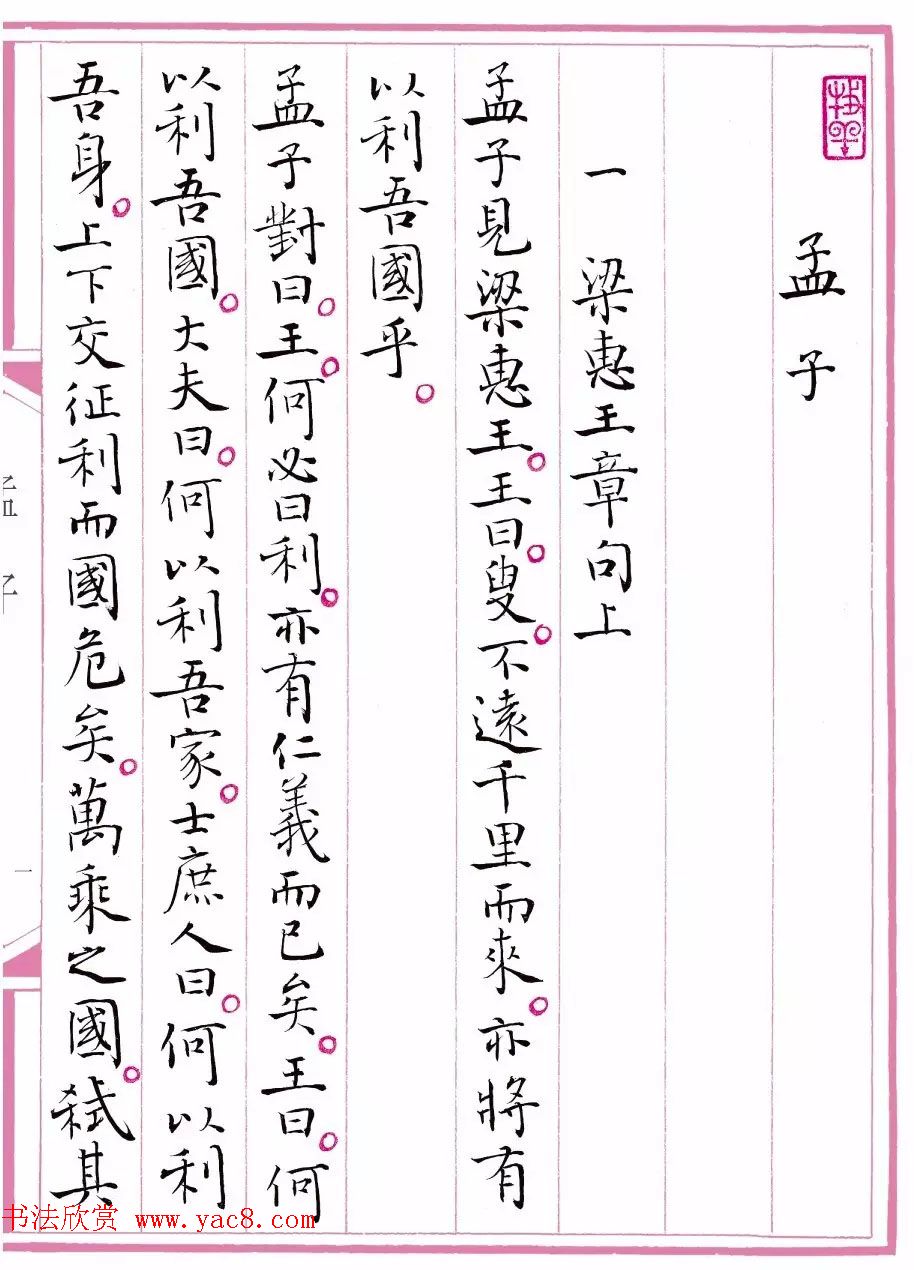 孟子
一 梁惠王章句上
孟子見梁惠王。王曰。叟。不遠千里而來。亦將有
以利吾國乎。
孟子對曰。王。何必曰利。亦有仁義而已矣。王曰。何
以利吾國。大夫曰。何以利吾家。士庶人曰。何以利
吾身。上下交征利而國危矣。萬乘之國。弒其
孟子
一
书法欣赏 www.yac8.com